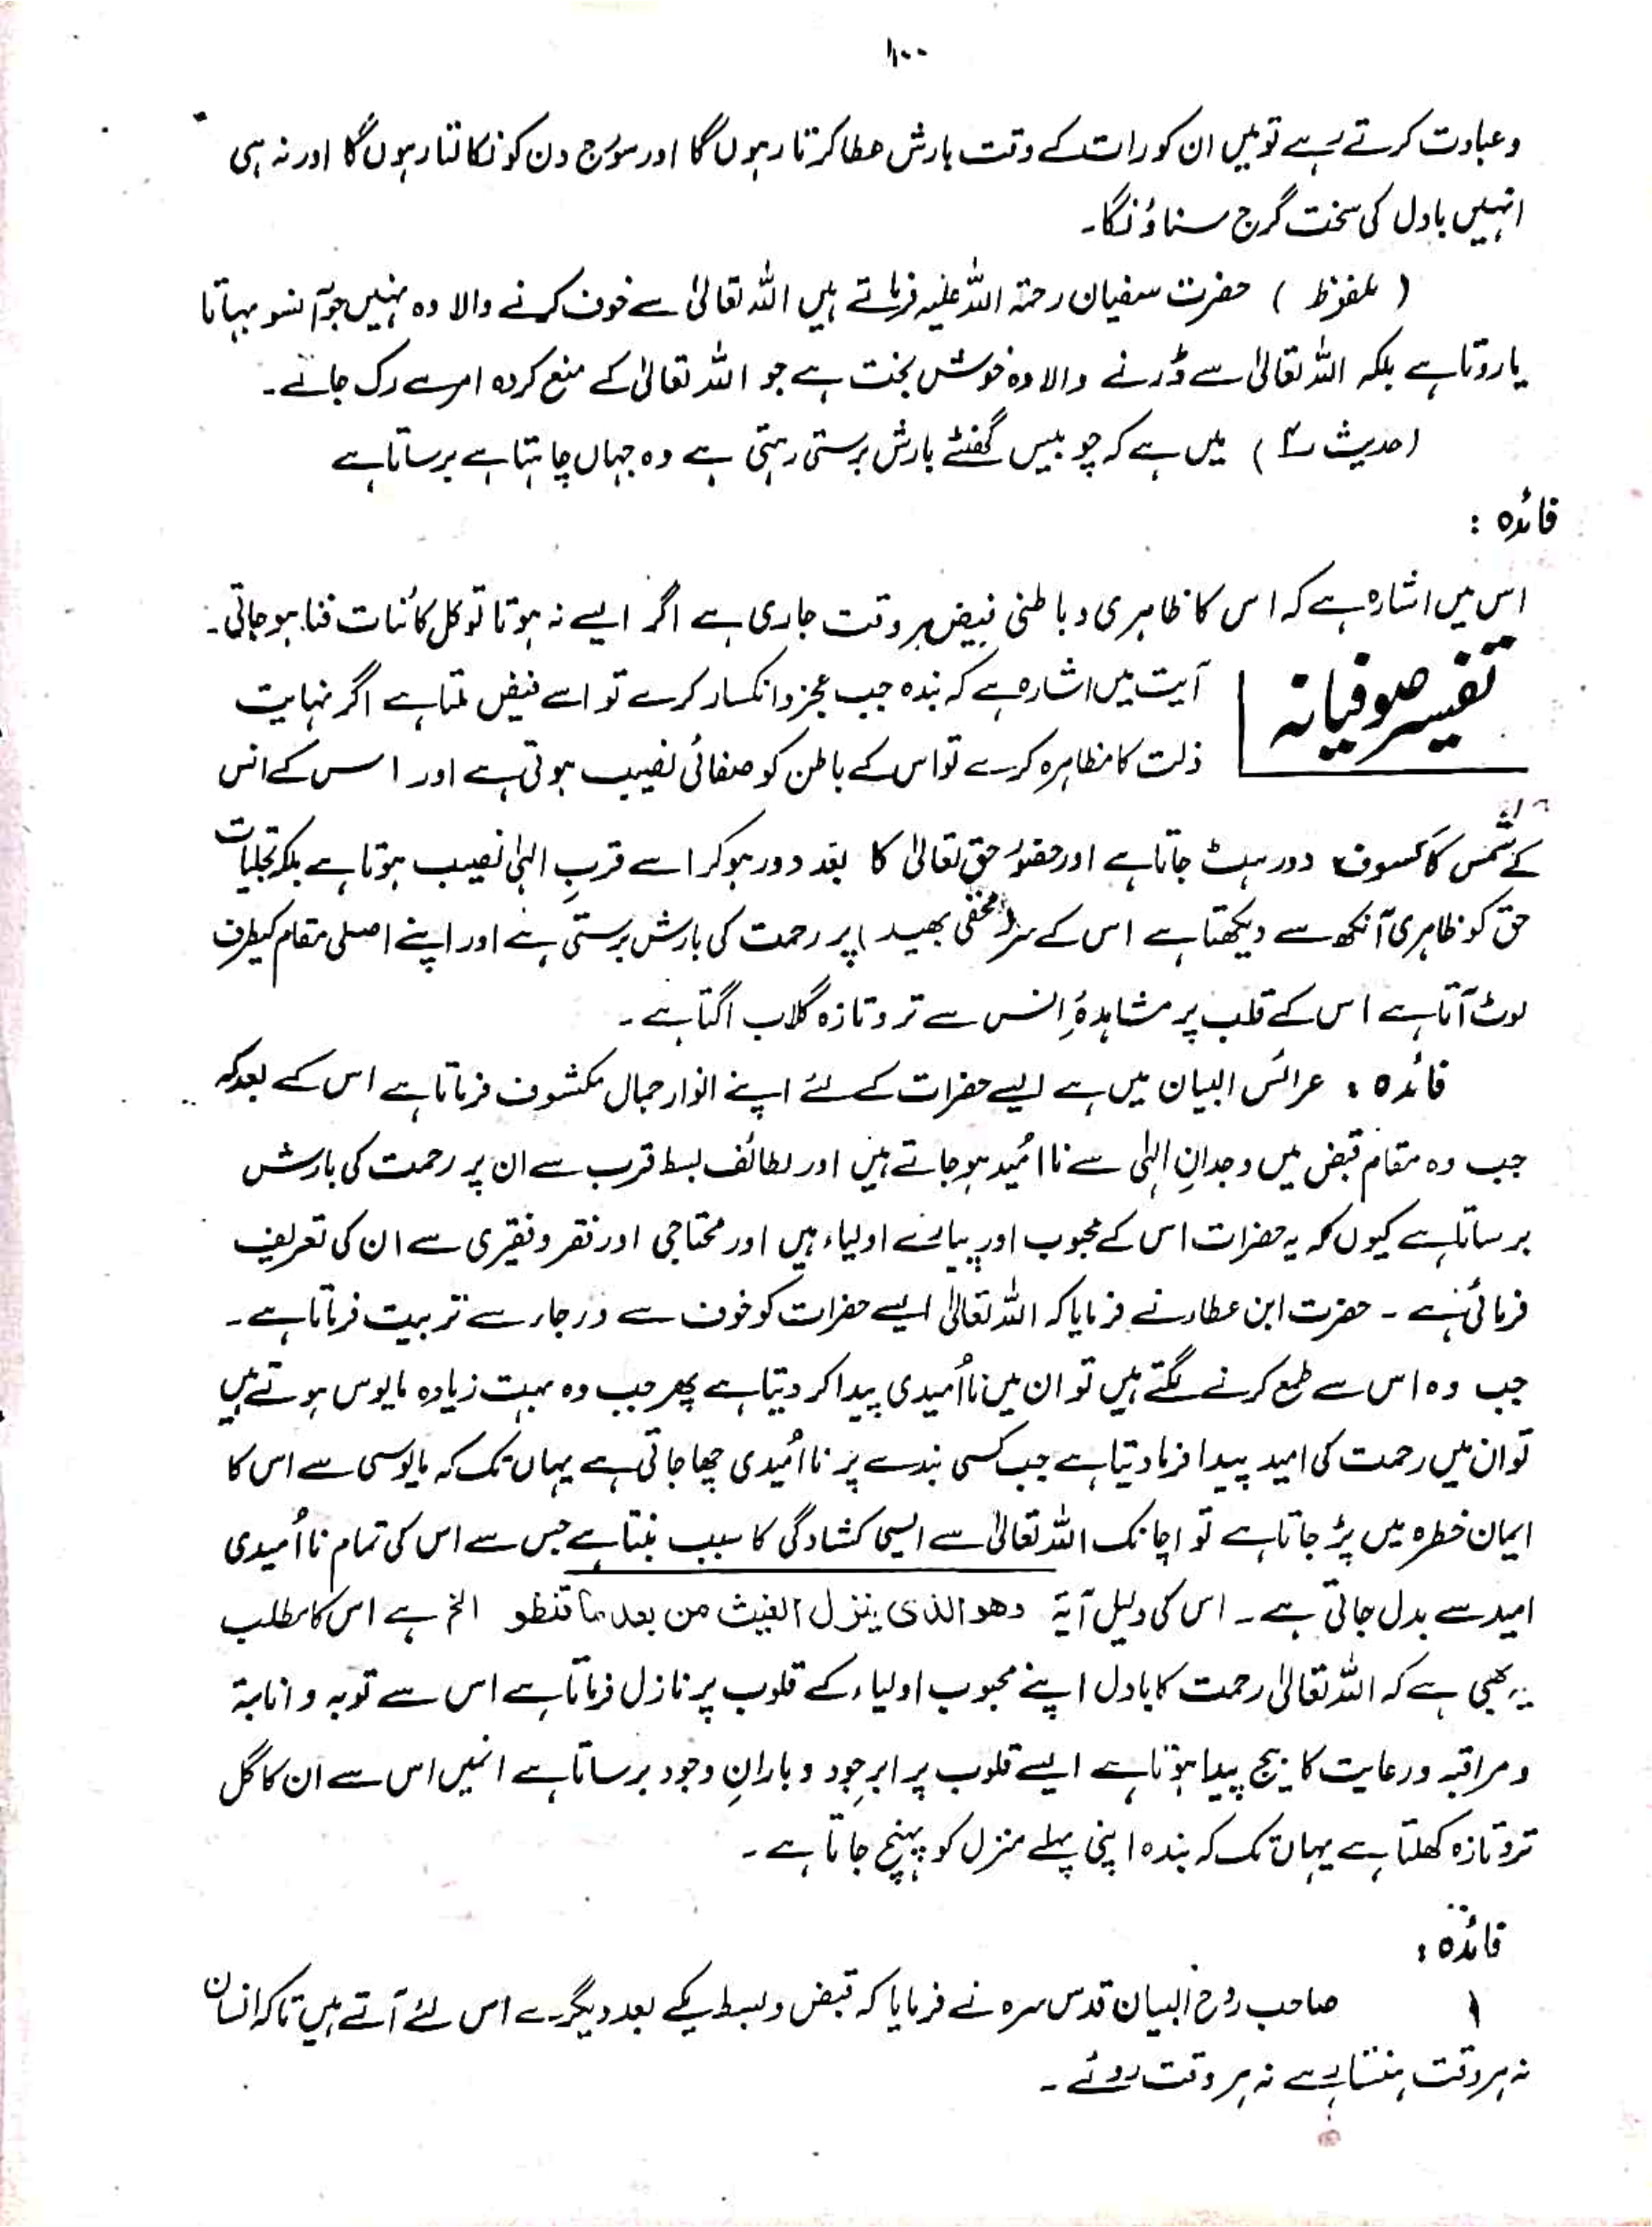 ۱۰۰
وعبادت کرتے رہے تو میں ان کو رات کے وقت بارش عطا کرتا رہوں گا اور سورج دن کو نکالتا رہوں گا اور نہ ہی
انہیں بادل کی سخت گرج سناؤنگا۔
( ملفوظ ) حضرت سفیان رحمۃ اللہ علیہ فرماتے ہیں اللہ تعالیٰ سے خوف کرنے والا وہ نہیں جو آنسو بہاتا
یا روتا ہے بلکہ اللہ تعالیٰ سے ڈرنے والا وہ خوش بخت ہے جو اللہ تعالیٰ کے منع کردہ امر سے رک جائے۔
(حدیث ) میں ہے کہ چوبیس گھنٹے بارش برستی رہتی ہے وہ جہاں چاہتا ہے برساتا ہے
فائدہ :
اس میں اشارہ ہے کہ اس کا ظاہری و باطنی فیض ہر وقت جاری ہے اگر ایسے نہ ہوتا تو کل کائنات فنا ہو جاتی۔
تفسیر صوفیانہ
آیت میں اشارہ ہے کہ بندہ جب عجز و انکسار کرے تو اسے فیض ملتا ہے اگر نہایت
ذلت کا مظاہرہ کرے تو اس کے باطن کو صفائی نصیب ہوتی ہے اور اس کے انس
کے شمس کا کسوف دور ہٹ جاتا ہے اور حضور حق تعالیٰ کا بعد دور ہو کر اسے قربِ الہٰی نصیب ہوتا ہے بلکہ تجلیات
حق کو ظاہری آنکھ سے دیکھتا ہے اس کے سر (مخفی بھید) پر رحمت کی بارش برستی ہے اور اپنے اصلی مقام کیطرف
لوٹ آتا ہے اس کے قلب پر مشاہدۂ انس سے تر و تازہ گلاب اگتا ہے۔
فائدہ : عرائس البیان میں ہے ایسے حضرات کے لئے اپنے انوار جمال مکشوف فرماتا ہے اس کے بعد کہ
جب وہ مقام قبض میں وجدانِ الہٰی سے نا اُمید ہو جاتے ہیں اور لطائف بسط قرب سے ان پر رحمت کی بارش
برساتا ہے کیوں کہ یہ حضرات اس کے محبوب اور پیارے اولیاء ہیں اور محتاجی اور فقر و فقیری سے ان کی تعریف
فرمائی ہے ۔ حضرت ابن عطار نے فرمایا کہ اللہ تعالیٰ ایسے حضرات کو خوف سے و رجاء سے تربیت فرماتا ہے۔
جب وہ اس سے طمع کرنے لگتے ہیں تو ان میں نا اُمیدی پیدا کر دیتا ہے پھر جب وہ بہت زیادہ مایوس ہوتے ہیں
تو ان میں رحمت کی امید پیدا فرما دیتا ہے جب کسی بندے پر نا اُمیدی چھا جاتی ہے یہاں تک کہ مایوسی سے اس کا
ایمان خطرہ میں پڑ جاتا ہے تو اچانک اللہ تعالیٰ سے ایسی کشادگی کا سبب بنتا ہے جس سے اس کی تمام نا اُمیدی
امید سے بدل جاتی ہے۔ اس کی دلیل آیۃ وهو الذی ینزل الغیث من بعد ما قنطو الخ ہے اس کا مطلب
یہ بھی ہے کہ اللہ تعالیٰ رحمت کا بادل اپنے محبوب اولیاء کے قلوب پر نازل فرماتا ہے اس سے توبہ و انابۃ
و مراقبہ و رعایت کا بیج پیدا ہوتا ہے ایسے قلوب پر ابرِ جود و بارانِ وجود برساتا ہے انہیں اس سے ان کا گل
تروتازہ کھلتا ہے یہاں تک کہ بندہ اپنی پہلے منزل کو پہنچ جاتا ہے ۔
فائدہ :
صاحب روح البیان قدس سرہ نے فرمایا کہ قبض و بسط یکے بعد دیگرے اس لئے آتے ہیں تاکہ انسان
نہ ہر وقت ہنستا رہے نہ ہر وقت روئے ۔